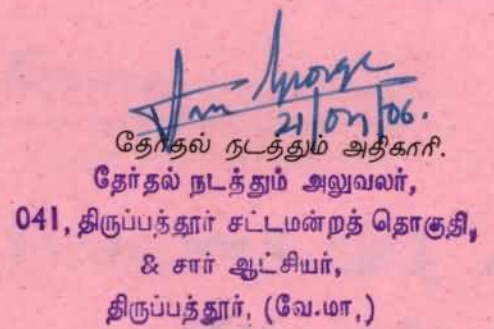 21/04/06.
தேர்தல் நடத்தும் அதிகாரி.
தேர்தல் நடத்தும் அலுவலர்,
041, திருப்பத்தூர் சட்டமன்றத் தொகுதி,
& சார் ஆட்சியர்,
திருப்பத்தூர், (வே.மா,)